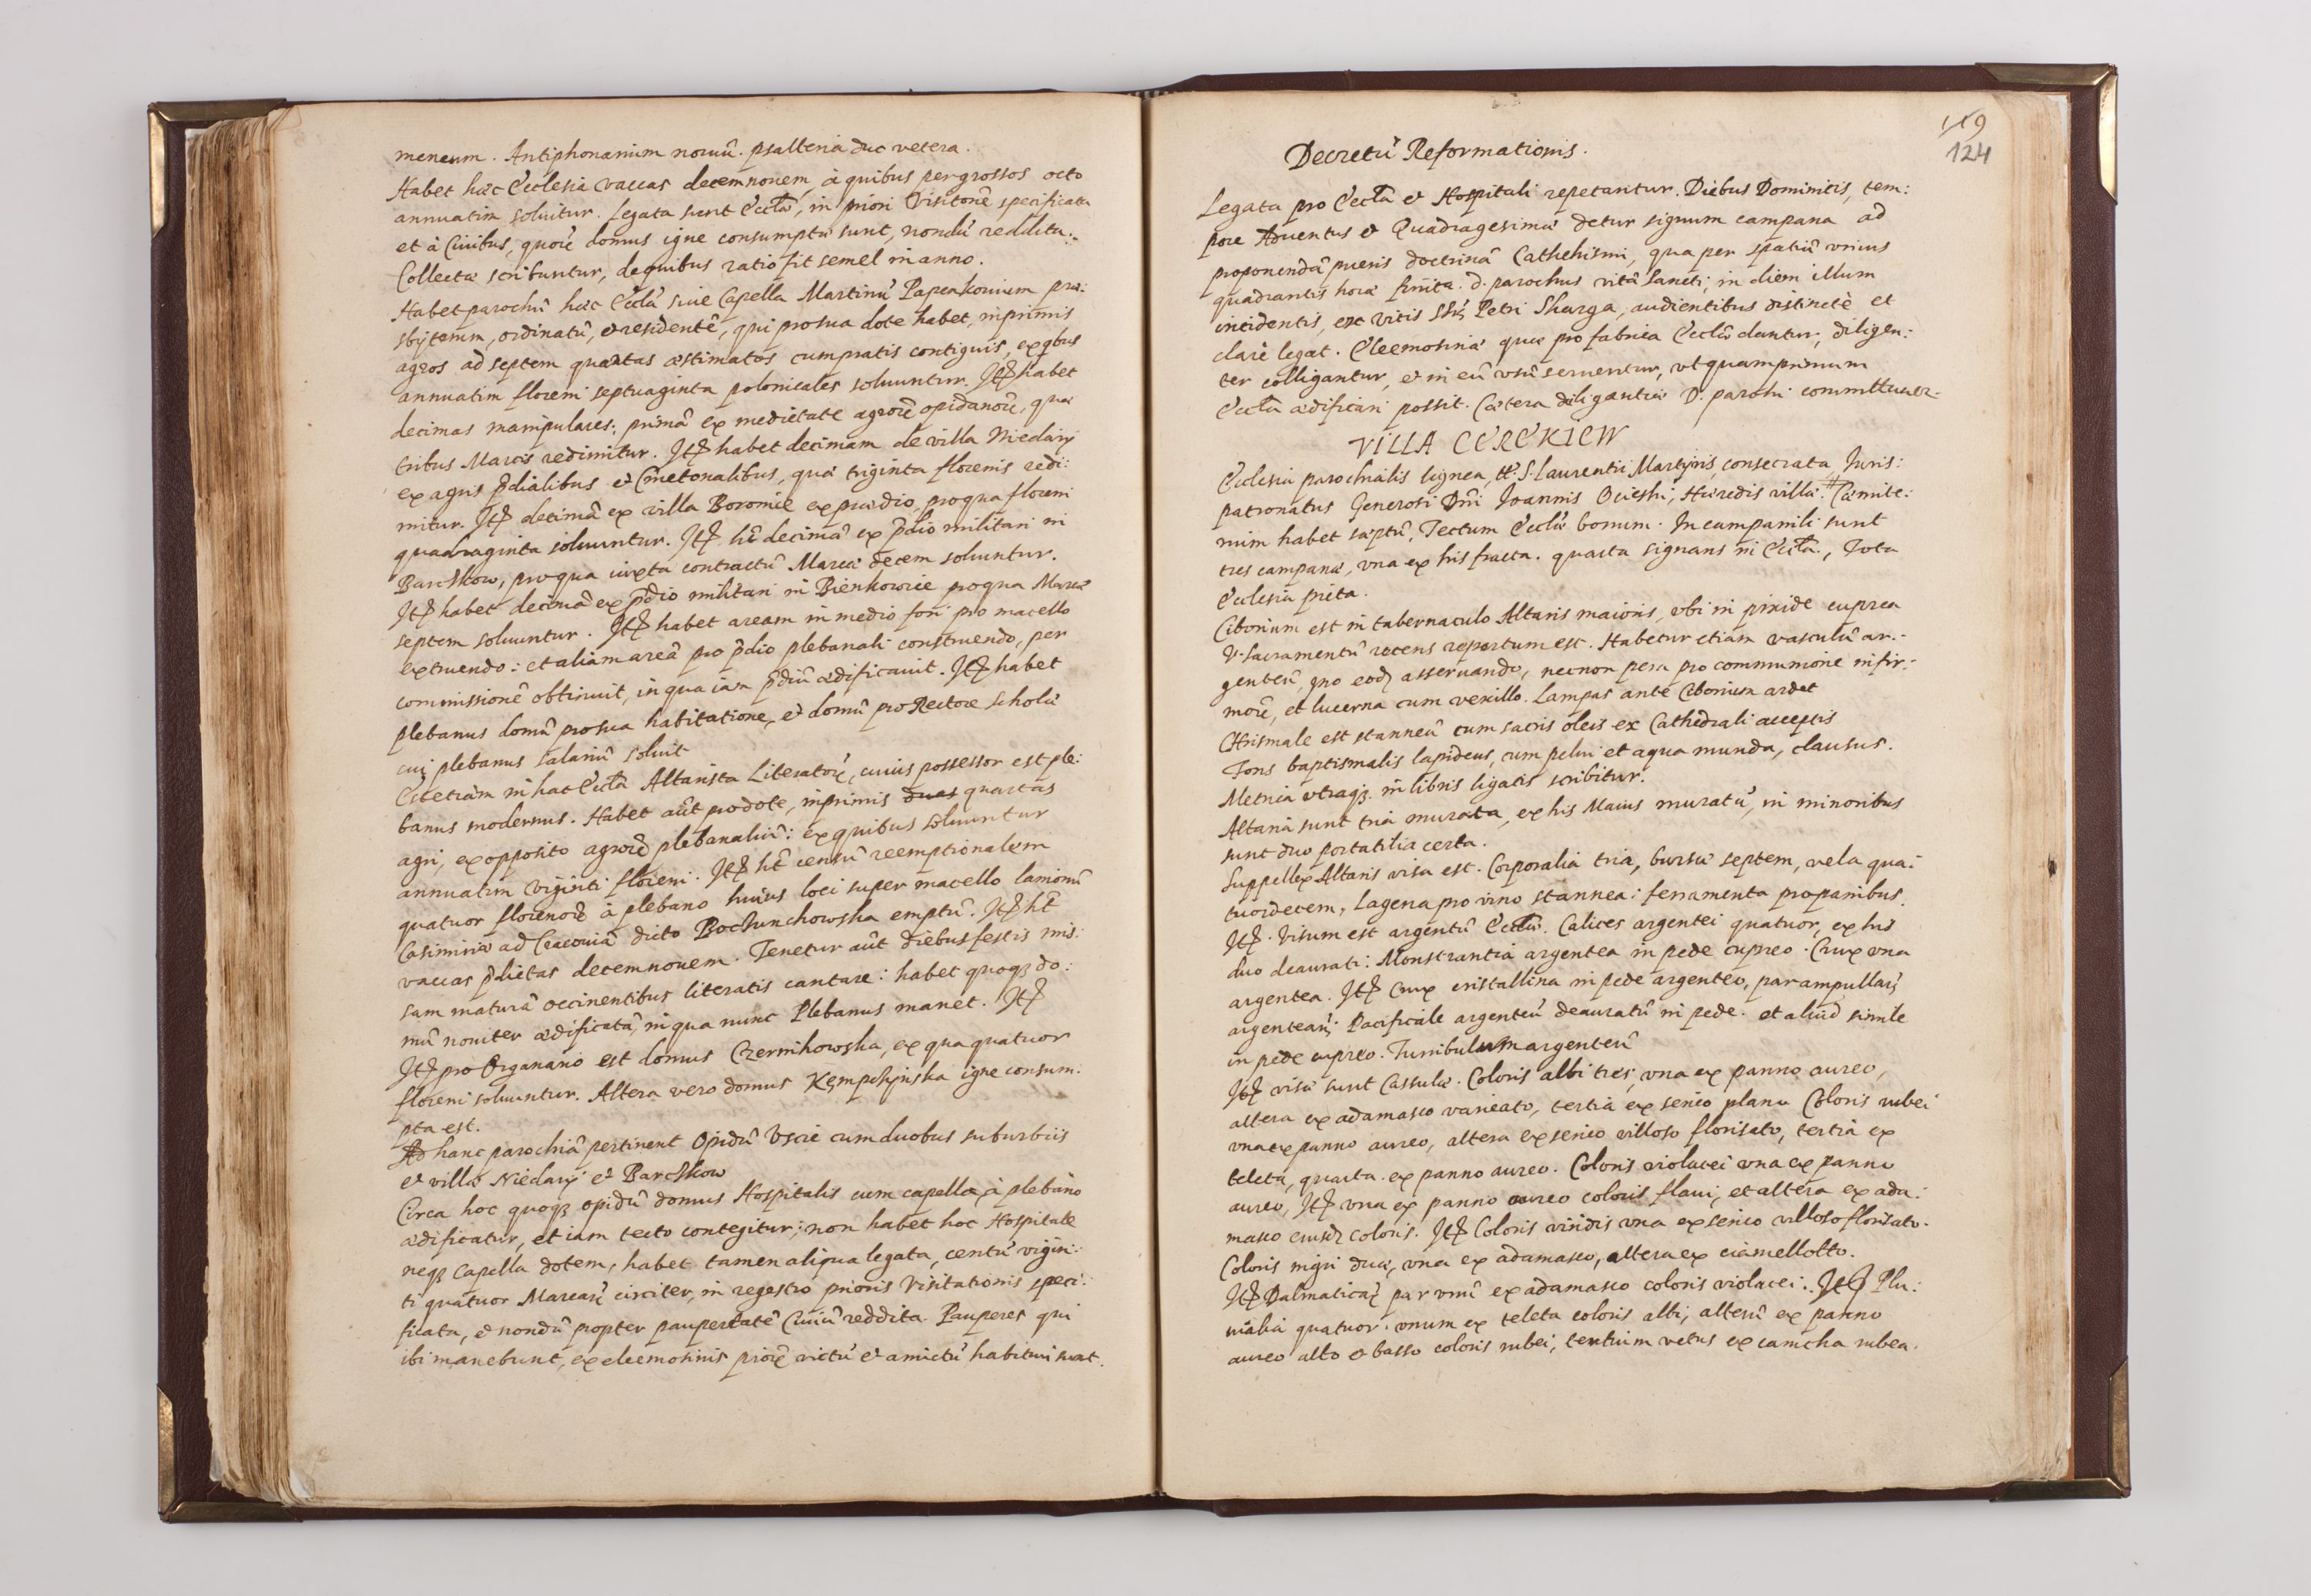 meneum. Antiphonarium nouũ. psalteria duo vetera.
Habet hæc Ecclesia vaccas decemnouem, à quibus per grossos octo
annuatim soluitur. Legata sunt Ecctæ, in priori Visitone specificata
et à Ciuibus, quorũ domus igne consumptæ sunt, nondũ reddita:
Collectæ scribuntur, de quibus ratio fit semel in anno.
Habet parochũ hæc Ecctã siue Capella Martinũ Papeakouium præ:
sbyterum, ordinatũ, et residentẽ, qui pro sua dote habet, inprimis
agros ad septem quartas æstimatos cum pratis contiguis, ex qbus
annuatim floreni septuaginta polonicales soluuntur. Itẽ habet
decimas manipulares: primã ex medietate agrorũ opidanorũ, quæ
tribus Marcis redimitur. Itẽ habet decimam de villa Niedary
ex agris p̃dialibus et Cmetonalibus, quæ triginta florenis redi:
mitur. Itẽ decimã ex villa Boromie ex prædio, pro qua floreni
quadraginta soluuntur. Itẽ hẽ decimã ex p̃dio militari in
Barczkow, pro qua iuxta contractũ Marcæ decem soluuntur.
Itẽ habet decimã ex p̃dio militari in Bienkowice pro qua Marcæ
septem soluuntur. Itẽ habet aream in medio fori pro macello
extruendo: et aliam areã pro p̃dio plebanali construendo, per
commissionẽ obtinuit, in qua iam p̃diũ ædificauit. Itẽ habet
plebanus domũ pro sua habitatione, et domũ pro Rectore Scholæ
cui plebanus salariũ soluit
Est etiam in hac Ecctã Altarista Literatorũ, cuius possessor est ple:
banus modernus. Habet aũt pro dote, inprimis duas quartas
agri, ex opposito agrorũ plebanaliũ: ex quibus soluuntur
annuatim viginti floreni. Itẽ hẽt censũ reemptionalem
quatuor florenorũ à plebano huius loci super macello lanionũ
Casimiriæ ad Cracouiã dicto Bochunchowska emptũ. Itẽ hẽt
vaccas p̃dictas decemnouem. Tenetur aũt diebus festis mis:
sam maturã occinentibus literatis cantare: habet quoqꝫ do:
mũ nouiter ædificatã, in qua nunc Plebanus manet. Itẽ
Itẽ pro Organario est domus Czernihowska, ex qua quatuor
floreni soluuntur. Altera vero domus Kępczyńska igne consum:
pta est.
Ad hanc parochiã pertinent Opidũ Vscie cum duobus suburbiis
et villæ Niedary et Barczkow
Circa hoc quoqꝫ opidũ domus Hospitalis cum capella, à plebano
ædificatur, et iam tecto contegitur; non habet hoc Hospitale
neqꝫ Capella dotem, habet tamen aliqua legata, centũ vigin:
ti quatuor Marcarũ circiter, in regestro prioris Visitationis speci:
ficata, et nondũ propter paupertatẽ Ciuiũ reddita. Pauperes qui
ibi manebunt, ex eleemosinis piorũ victũ et amictũ habituri sunt.
119
124
Decretũ Reformationis.
Legata pro Ecctã et Hospitali repetantur. Diebus Dominicis, tem:
pore Aduentus et Quadragesimæ detur signum campana ad
proponendã pueris doctrinã Cathehismi, qua per spatiũ vnius
quadrantis horæ finita. d. parochus vitã Sancti, in diem illum
incidentis, ex vitis SSrũ Petri Skarga, audientibus distinctè et
clarè legat. Eleemosinæ quæ pro fabrica Ecctæ dantur, diligen:
ter colligantur, et in eũ vsũ seruentur, vt quamprimum
Ecctã ædificari possit. Cætera diligentiæ D. parochi committuntur.
VILLA CEREKIEW
Ecclesia parochialis lignea, tt. S. Laurentii Martyris, consecrata, Iuris:
patronatus Generosi Dñi Ioannis Ocieski, Hæredis villæ. Cæmite:
rium habet sæptũ, Tectum Ecctæ bonum. In campanili sunt
tres campanæ, vna ex his fracta. quarta signans in Ecctã., Tota
Ecclesia picta.
Ciborium est in tabernaculo Altaris maioris, vbi in pixide cuprea
V. Sacramentũ recens repertum est. Habetur etiam vasculũ ar:
genteũ, pro eodẽ asseruando, necnon pera pro communione infir:
morũ, et lucerna cum vexillo. Lampas ante Ciborium ardet
Chrismale est stanneũ cum sacris oleis ex Cathedrali acceptis
Fons baptismalis lapideus, cum pelui et aqua munda, clausus.
Metrica vtraqꝫ in libris ligatis scribitur.
Altaria sunt tria murata, ex his Maius muratũ, in minoribus
sunt duo portatilia certa.
Suppellex Altaris visa est. Corporalia tria, bursæ septem, vela qua:
tuordecem, Lagena pro vino stannea: ferramenta pro panibus.
Itẽ. Visum est argentũ Ecctæ. Calices argentei quatuor, ex his
duo deaurati: Monstrantia argentea in pede cupreo. Crux vna
argentea. Itẽ Crux cristallina in pede argenteo, par ampullarũ
argentearũ. Pacificale argenteũ deauratũ in pede. et aliud simile
in pede cupreo. Turribulum argenteũ
Itẽ visæ sunt Cassulæ. Coloris albi tres, vna ex panno aureo,
altera ex adamasco varieato, tertia ex serico plano Coloris rubei
vna ex panno aureo, altera ex serico villoso florisato, tertia ex
teleta, quarta ex panno aureo. Coloris violacei vna ex panno
aureo, Itẽ vna ex panno aureo coloris flaui, et altera ex ada:
masco eiusdẽ coloris. Itẽ Coloris viridis vna ex serico villoso florisato.
Coloris nigri duæ, vna ex adamasco, altera ex ciamellotto.
Itẽ Dalmaticarũ par vnũ ex adamasco coloris violacei: Itẽ Plu:
uialia quatuor. vnum ex teleta coloris albi, alterũ ex panno
aureo alto et basso coloris rubei, tertium vetus ex camcha rubea.